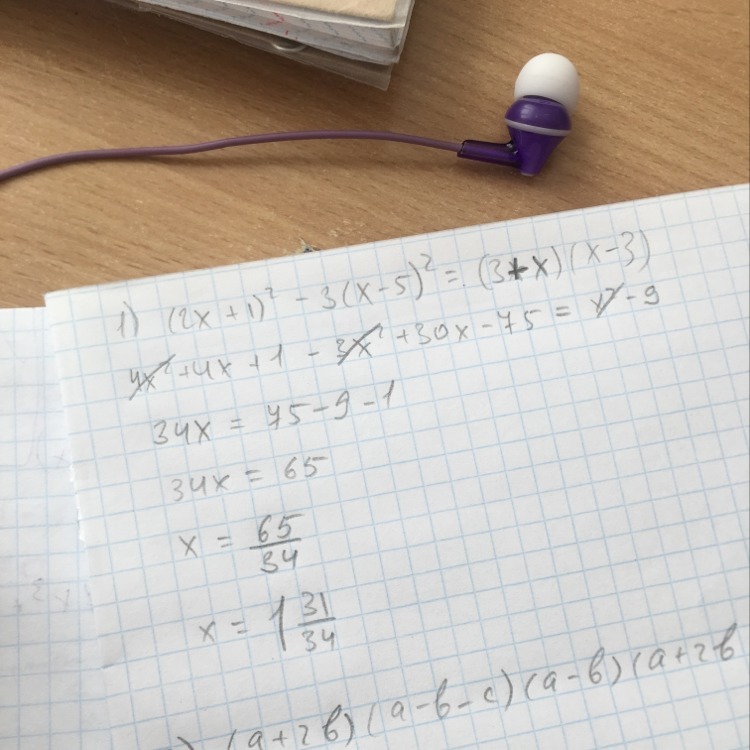 1) (2x + 1)² - 3(x - 5)² = (3 + x)(x - 3)
4x² + 4x + 1 - 3x² + 30x - 75 = x² - 9
34x = 75 - 9 - 1
34x = 65
x = 65/34
x = 1 31/34
) (a + 2b)(a - b - c)(a - b)(a + 2b